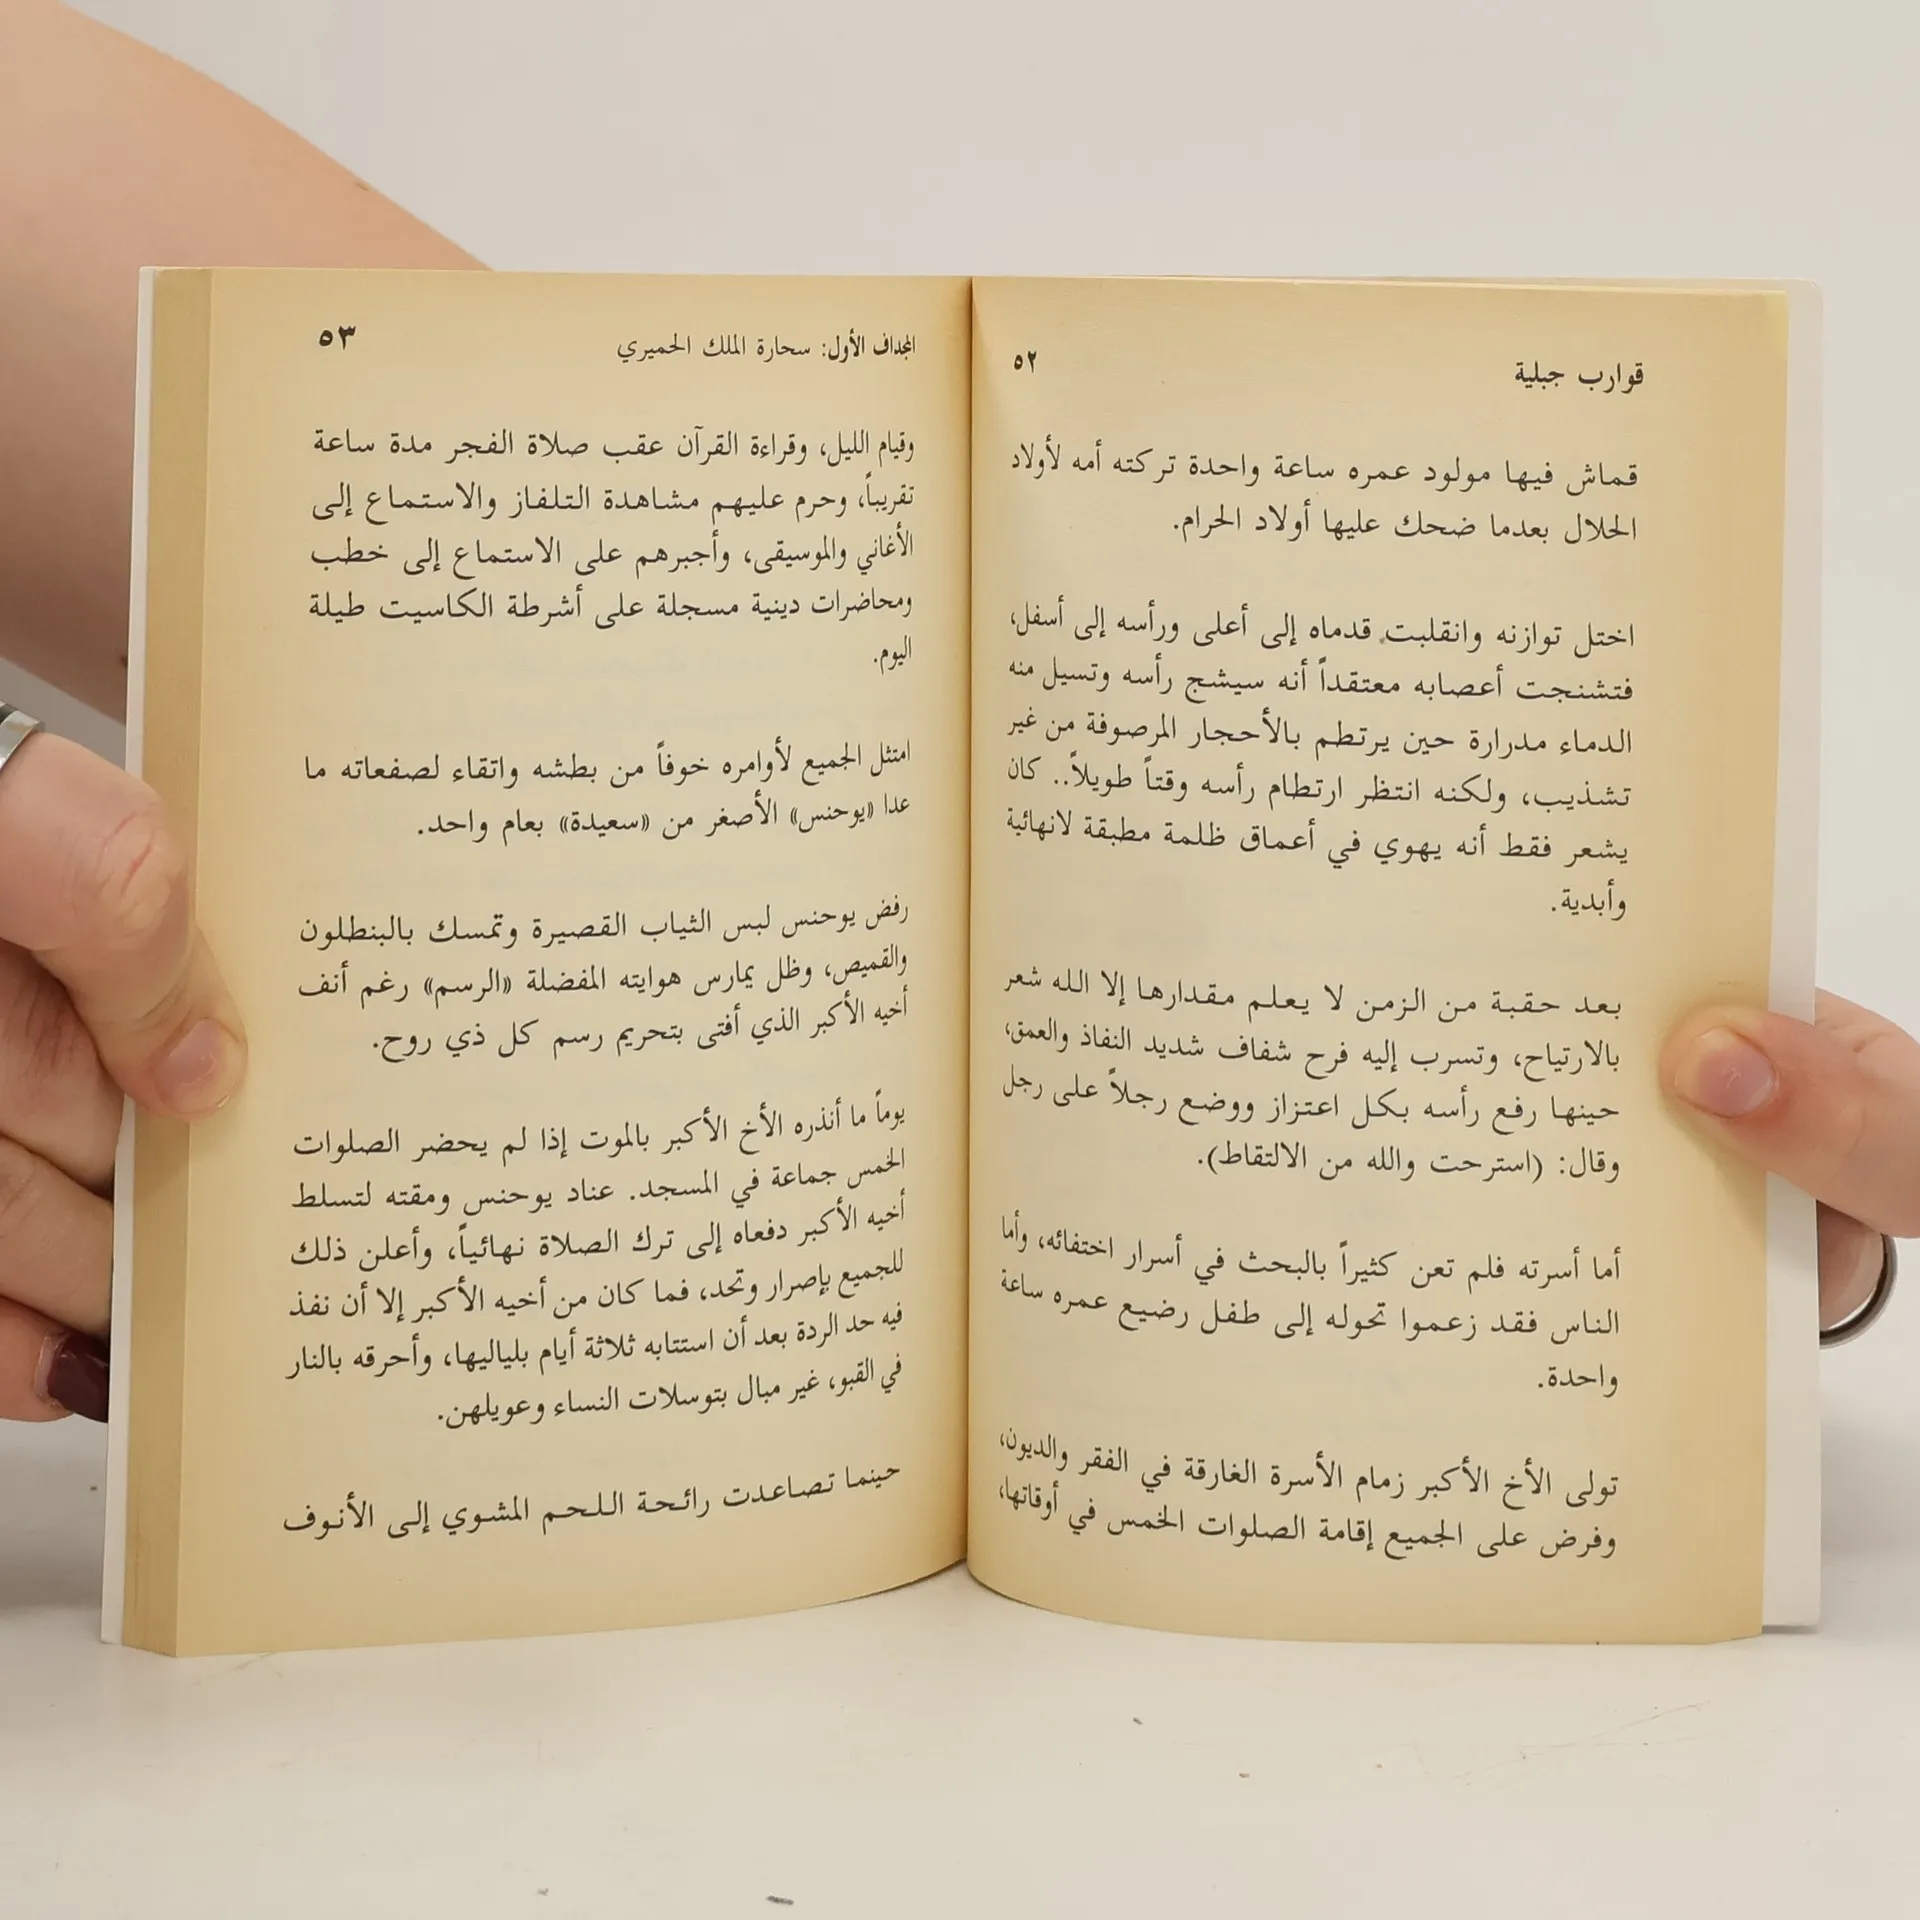 قوارب جبلية ٥٢
قماش فيها مولود عمره ساعة واحدة تركته أمه لأولاد
الحلال بعدما ضحك عليها أولاد الحرام.
اختل توازنه وانقلبت قدماه إلى أعلى ورأسه إلى أسفل،
فتشنجت أعصابه معتقداً أنه سيشج رأسه وتسيل منه
الدماء مدرارة حين يرتطم بالأحجار المرصوفة من غير
تشذيب، ولكنه انتظر ارتطام رأسه وقتاً طويلاً.. كان
يشعر فقط أنه يهوي في أعماق ظلمة مطبقة لانهائية
وأبدية.
بعد حقبة من الزمن لا يعلم مقدارها إلا الله شعر
بالارتياح، وتسرب إليه فرح شفاف شديد النفاذ والعمق،
حينها رفع رأسه بكل اعتزاز ووضع رجلاً على رجل
وقال: (استرحت والله من الالتقاط).
أما أسرته فلم تعن كثيراً بالبحث في أسرار اختفائه، وأما
الناس فقد زعموا تحوله إلى طفل رضيع عمره ساعة
واحدة.
تولى الأخ الأكبر زمام الأسرة الغارقة في الفقر والديون،
وفرض على الجميع إقامة الصلوات الخمس في أوقاتها،
المجداف الأول: سحارة الملك الحميري ٥٣
وقيام الليل، وقراءة القرآن عقب صلاة الفجر مدة ساعة
تقريباً، وحرم عليهم مشاهدة التلفاز والاستماع إلى
الأغاني والموسيقى، وأجبرهم على الاستماع إلى خطب
ومحاضرات دينية مسجلة على أشرطة الكاسيت طيلة
اليوم.
امتثل الجميع لأوامره خوفاً من بطشه واتقاء لصفعاته ما
عدا «يوحنس» الأصغر من «سعيدة» بعام واحد.
رفض يوحنس لبس الثياب القصيرة وتمسك بالبنطلون
والقميص، وظل يمارس هوايته المفضلة «الرسم» رغم أنف
أخيه الأكبر الذي أفتى بتحريم رسم كل ذي روح.
يوماً ما أنذره الأخ الأكبر بالموت إذا لم يحضر الصلوات
الخمس جماعة في المسجد. عناد يوحنس ومقته لتسلط
أخيه الأكبر دفعاه إلى ترك الصلاة نهائياً، وأعلن ذلك
للجميع بإصرار وتحد، فما كان من أخيه الأكبر إلا أن نفذ
فيه حد الردة بعد أن استتابه ثلاثة أيام بلياليها، وأحرقه بالنار
في القبو، غير مبال بتوسلات النساء وعويلهن.
حينما تصاعدت رائحة اللحم المشوي إلى الأنوف